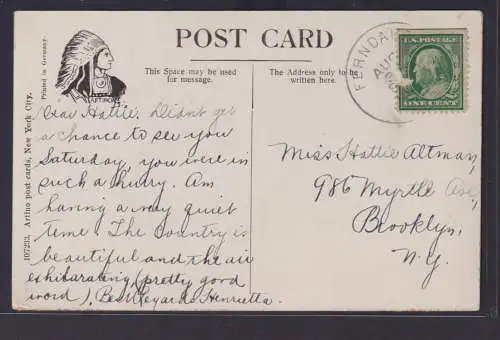 POST CARD
This Space may be used
for message.
The Address only to be
written here.
Printed in Germany.
107283, Artino post cards, New York City.
ARTINO
FERNDA
AUG
U.S. POSTAGE
ONE CENT
Dear Hattie, Didnt get
a chance to see you
Saturday, you were in
such a hurry. Am
having a very quiet
time. The country is
beautiful and the air
exhilarating (pretty good
word). Best Regards Henrietta.
Miss Hattie Altman,
986 Myrtle Ave.,
Brooklyn,
N.Y.